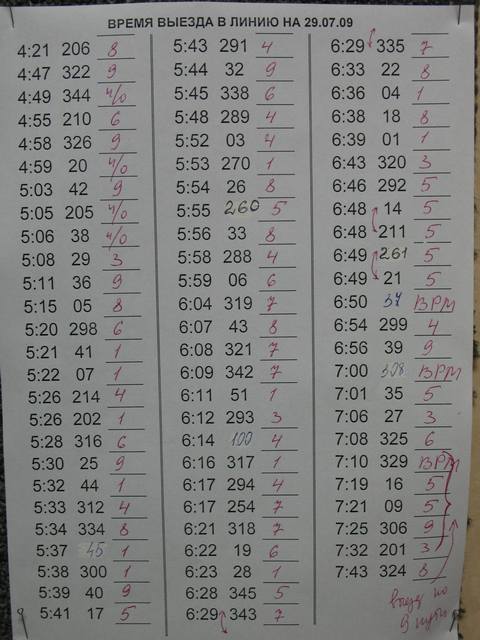 ВРЕМЯ ВЫЕЗДА В ЛИНИЮ НА 29.07.09
4:21 206 8
4:47 322 9
4:49 344 ч/о
4:55 210 6
4:58 326 9
4:59 20 ч/о
5:03 42 9
5:05 205 ч/о
5:06 38 ч/о
5:08 29 3
5:11 36 9
5:15 05 8
5:20 298 6
5:21 41 1
5:22 07 1
5:26 214 4
5:26 202 1
5:28 316 6
5:30 25 9
5:32 44 1
5:33 312 4
5:34 334 8
5:37 45 1
5:38 300 1
5:39 40 9
5:41 17 5
5:43 291 4
5:44 32 9
5:45 338 6
5:48 289 4
5:52 03 4
5:53 270 1
5:54 26 8
5:55 260 5
5:56 33 8
5:58 288 4
5:59 06 6
6:04 319 7
6:07 43 8
6:08 321 7
6:09 342 7
6:11 51 1
6:12 293 3
6:14 100 4
6:16 317 1
6:17 294 4
6:17 254 7
6:21 318 7
6:22 19 6
6:23 28 1
6:28 345 5
6:29 343 7
6:29 335 7
6:33 22 8
6:36 04 1
6:38 18 8
6:39 01 1
6:43 320 3
6:46 292 5
6:48 14 5
6:48 211 5
6:49 261 5
6:49 21 5
6:50 37 ВРМ
6:54 299 4
6:56 39 9
7:00 308 ВРМ
7:01 35 5
7:06 27 3
7:08 325 6
7:10 329 ВРМ
7:19 16 5
7:21 09 5
7:25 306 9
7:32 201 3
7:43 324 8
выезд по
9 пути